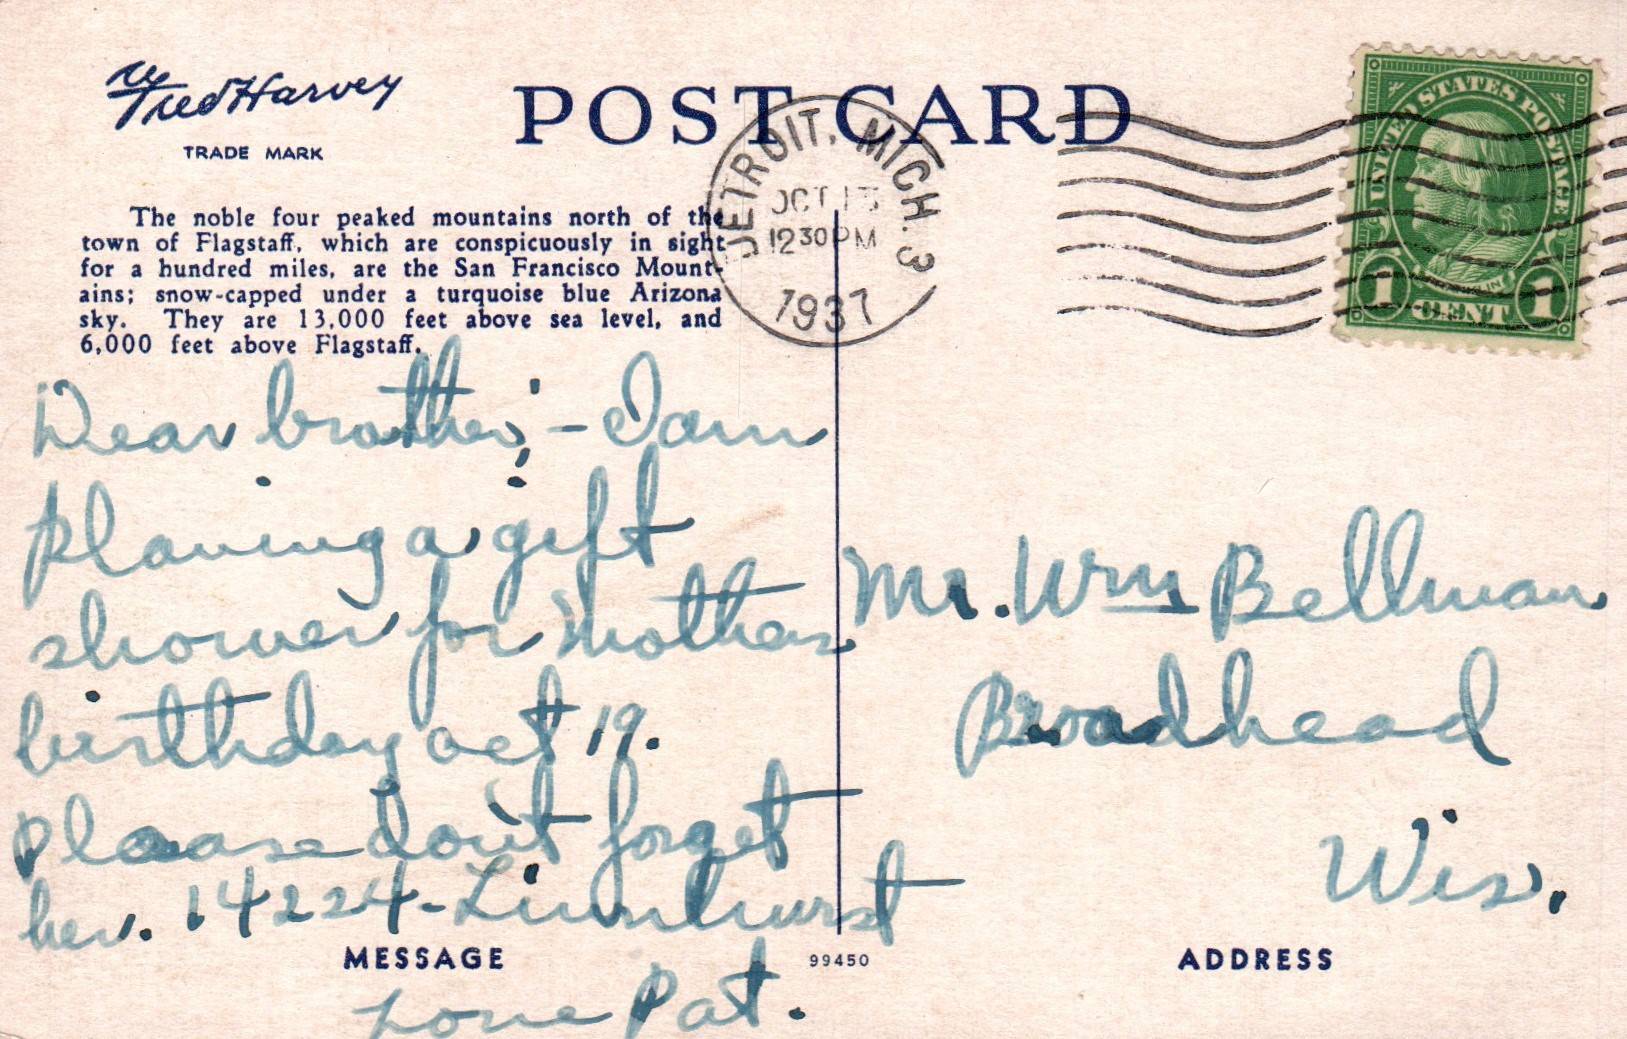 Fred Harvey
TRADE MARK
POST CARD
DETROIT, MICH. 3
OCT 13
12 30 PM
1937
UNITED STATES POSTAGE
FRANKLIN
1 CENT 1
The noble four peaked mountains north of the
town of Flagstaff, which are conspicuously in sight
for a hundred miles, are the San Francisco Mount-
ains; snow-capped under a turquoise blue Arizona
sky. They are 13,000 feet above sea level, and
6,000 feet above Flagstaff.
Dear brother; - I am
planing a gift
shower for Mothers
birthday Oct 19.
please don't forget
her. 14224 - Linnhurst
Love Pat.
Mr. Wm Bellman
Brodhead
Wis.
MESSAGE
99450
ADDRESS